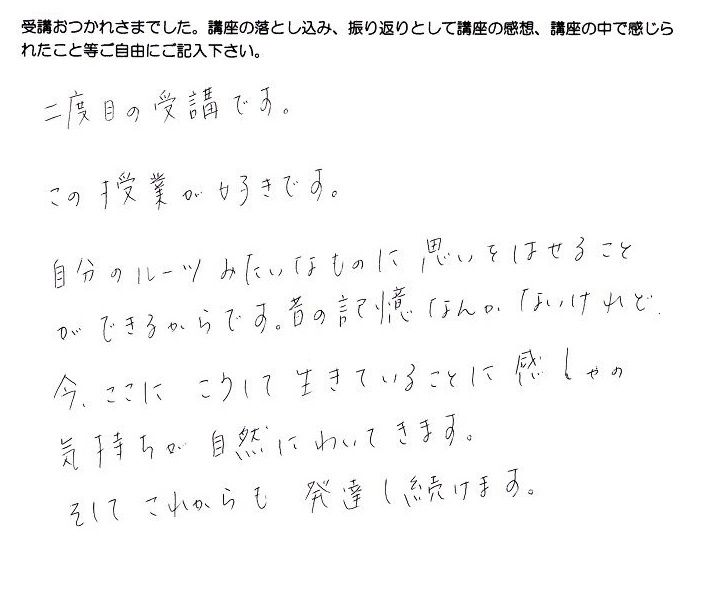 受講おつかれさまでした。講座の落とし込み、振り返りとして講座の感想、講座の中で感じら
れたこと等ご自由にご記入下さい。
二度目の受講です。
この授業が好きです。
自分のルーツみたいなものに思いをはせること
ができるからです。昔の記憶なんかないけれど、
今、ここに こうして生きていることに感しゃの
気持ちが自然にわいてきます。
そしてこれからも 発達し続けます。